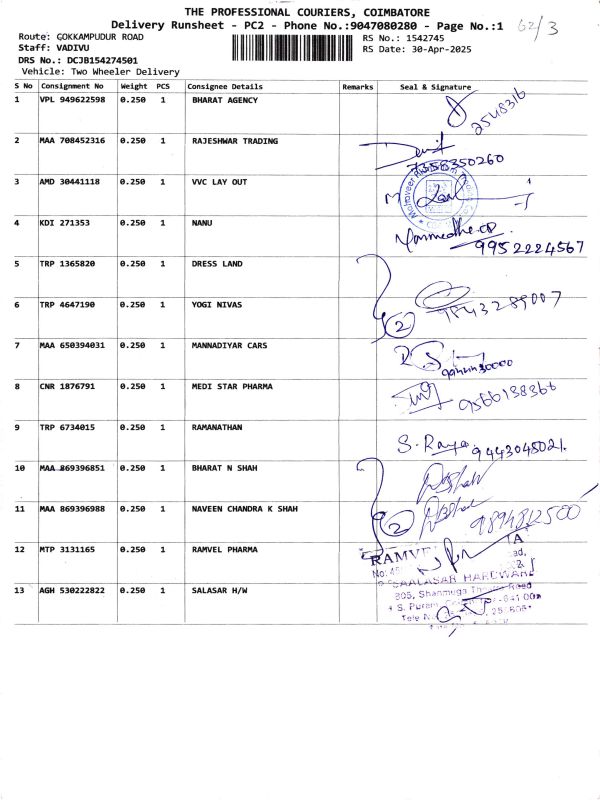 THE PROFESSIONAL COURIERS, COIMBATORE
Delivery Runsheet - PC2 - Phone No.:9047080280 - Page No.:1 62/3
Route: GOKKAMPUDUR ROAD RS No.: 1542745
Staff: VADIVU RS Date: 30-Apr-2025
DRS No.: DCJB154274501
Vehicle: Two Wheeler Delivery
S No Consignment No Weight PCS Consignee Details Remarks Seal & Signature
1 VPL 949622598 0.250 1 BHARAT AGENCY 2548316
2 MAA 708452316 0.250 1 RAJESHWAR TRADING 7358350260
3 AMD 30441118 0.250 1 VVC LAY OUT
4 KDI 271353 0.250 1 NANU 9952224567
5 TRP 1365820 0.250 1 DRESS LAND
6 TRP 4647190 0.250 1 YOGI NIVAS 2 9843289007
7 MAA 650394031 0.250 1 MANNADIYAR CARS
8 CNR 1876791 0.250 1 MEDI STAR PHARMA 9566138366
9 TRP 6734015 0.250 1 RAMANATHAN S. Raya 9443045021.
10 MAA 869396851 0.250 1 BHARAT N SHAH
11 MAA 869396988 0.250 1 NAVEEN CHANDRA K SHAH 2 9894812500
12 MTP 3131165 0.250 1 RAMVEL PHARMA
SAALASAR HARDWARE
13 AGH 530222822 0.250 1 SALASAR H/W 305, Shanmuga Road